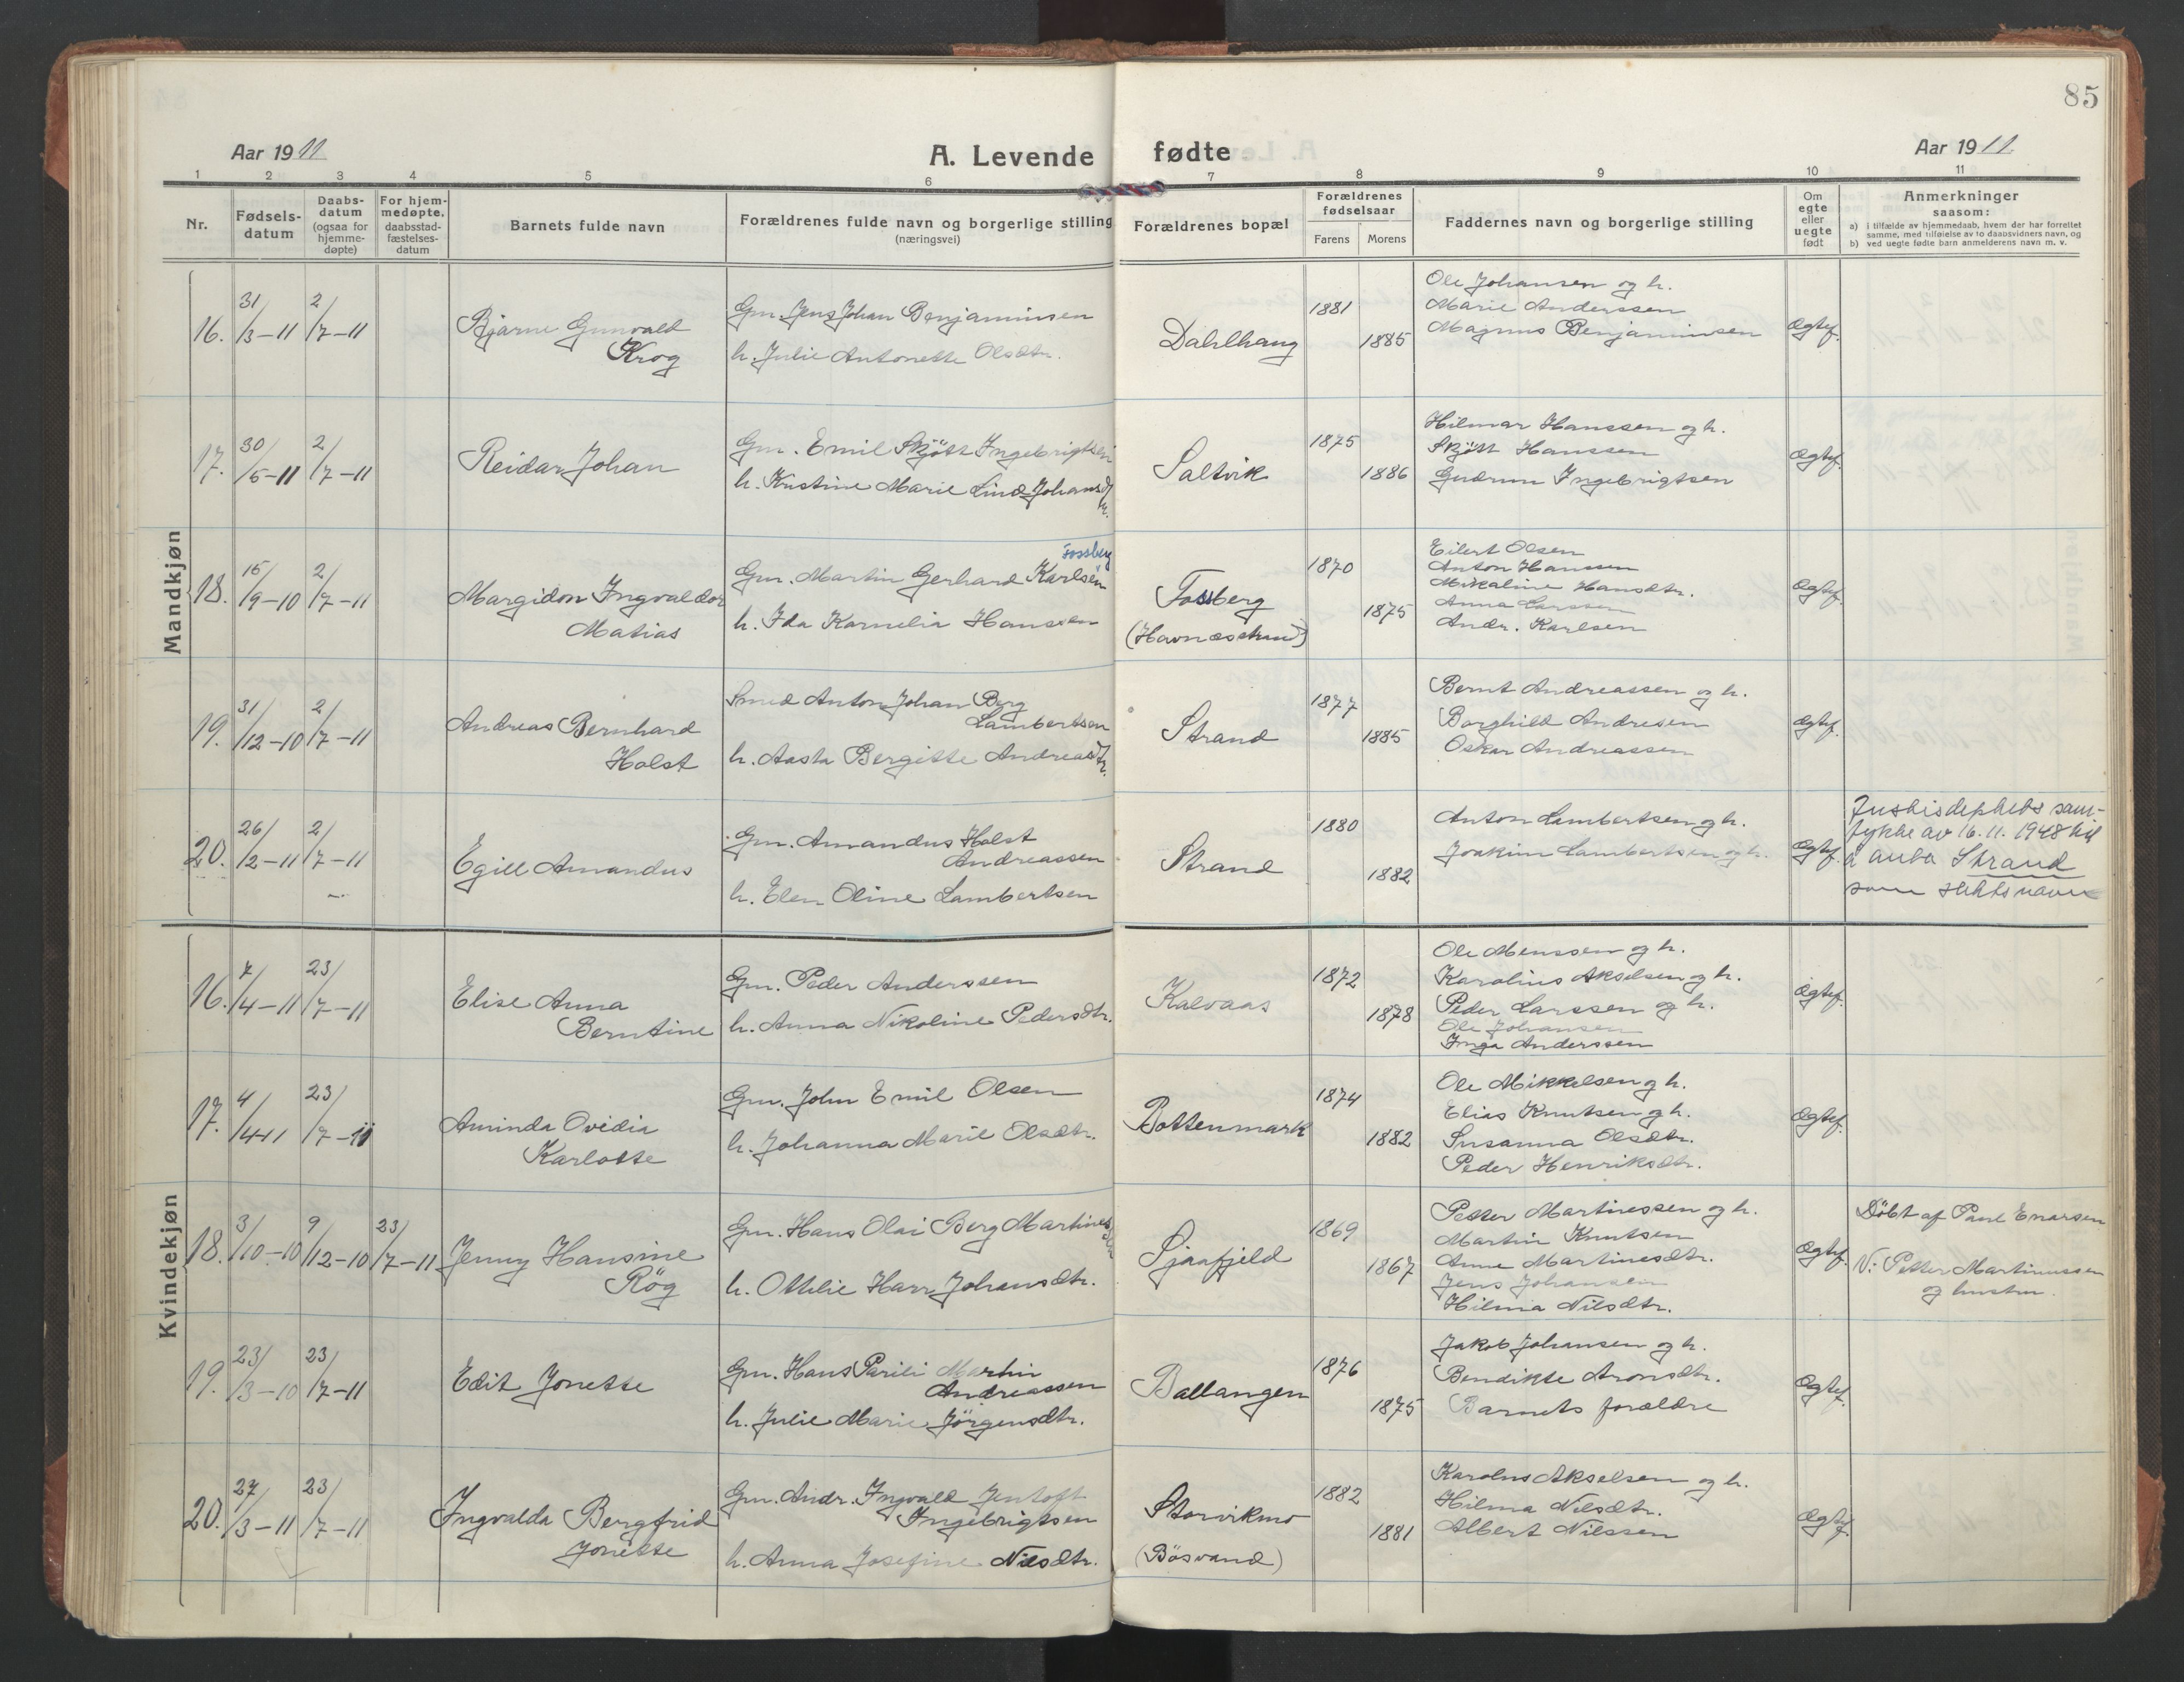 85
Aar 1911
A. Levende fødte
Aar 1911
1 2 3 4 5 6 7 8 9 10 11
Nr.
Fødsels-
datum
Daabs-
datum
(ogsaa for
hjemme-
døpte)
For hjem-
medøpte,
daabsstad-
fæstelses-
datum
Barnets fulde navn
Forældrenes fulde navn og borgerlige stilling
(næringsvei)
Forældrenes bopæl
Forældrenes
fødselsaar
Farens Morens
Faddernes navn og borgerlige stilling
Om
egte
eller
uegte
født
Anmerkninger
saasom:
a) i tilfælde av hjemmedaab, hvem der har forrettet
samme, med tilføielse av to daabsvidners navn, og
b) ved uegte fødte barn anmelderens navn m. v.
Mandkjøn
16. 31/3-11 2/7-11
Bjarne Gunvald
Krog
Gm. Jens Johan Benjaminsen
h. Julie Antonette Olsdtr.
Dahlhaug
1881
1885
Ole Johansen og h.
Marie Anderssen
Magnus Benjaminsen
Ægtef.
17. 30/5-11 2/7-11
Reidar Johan
Gm. Emil Skjött Ingebrigtsen
h. Kristine Marie Lind Johansdtr.
Saltvik
1875
1886
Hilmar Hanssen og h.
Skjött Hanssen
Gudrun Ingebrigtsen
Ægtef.
18. 15/9-10 2/7-11
Margidon Ingvaldor
Matias
Fossberg
Gm. Martin Gerhard Karlsen
h. Ida Kornelia Hanssen
Fossberg
(Havnæsstrand)
1870
1875
Eilert Olsen
Anton Hanssen
Mikaline Hansdtr.
Anna Larssen
Andr. Karlsen
Ægtef.
19. 31/12-10 2/7-11
Andreas Bernhard
Holst
Smed Anton Johan Berg
Lambertsen
h. Aasta Bergitte Andreasdtr.
Strand
1877
1885
Bernt Andreassen og h.
Borghild Andresen
Oskar Andreassen
Ægtef.
20. 26/2-11 2/7-11
Egill Amandus
Gm. Amandus Holst
Andreassen
h. Elen Oline Lambertsen
Strand
1880
1882
Anton Lambertsen og h.
Joakim Lambertsen og h.
Ægtef.
Justisdeptets sam-
tykke av 16.11.1948 til
å anta Strand
som slektsnavn
Kvindekjøn
16. 7/4-11 23/7-11
Elise Anna
Berntine
Gm. Peder Anderssen
h. Anna Nikoline Pedersdtr.
Kalvaas
1872
1878
Ole Menssen og h.
Karolius Akselsen og h.
Peder Larssen og h.
Ole Johansen
Inga Anderssen
Ægtef.
17. 4/4-11 23/7-11
Aminda Ovidia
Karlotte
Gm. John Emil Olsen
h. Johanna Marie Olsdtr.
Bottenmark
1874
1882
Ole Mikkelsen og h.
Elias Knutsen og h.
Susanna Olsdtr.
Peder Henriksdtr.
Ægtef.
18. 3/10-10 9/12-10 23/7-11
Jenny Hansine
Røg
Gm. Hans Olai Berg Martinessen
h. Ottelie Harr Johansdtr.
Sjaafjeld
1869
1867
Petter Martinessen og h.
Martin Knutsen
Anne Martinesdtr.
Jens Johansen
Hilma Nilsdtr.
Ægtef.
Döbt af Paul Enarsen
V: Petter Martinussen
og hustru.
19. 23/3-10 23/7-11
Edit Jonette
Gm. Hans Parili Martin
Andreassen
h. Julie Marie Jörgensdtr.
Ballangen
1876
1875
Jakob Johansen og h.
Bendikte Aronsdtr.
Barnets forældre
Ægtef.
20. 27/3-11 23/7-11
Ingvalda Bergfrid
Jonette
Gm. Andr. Ingvald Jentoft
Ingebrigtsen
h. Anna Josefine Nilsdtr.
Storvikmo
(Bösvand)
1882
1881
Karolus Akselsen og h.
Hilma Nilsdtr.
Albert Nilssen
Ægtef.